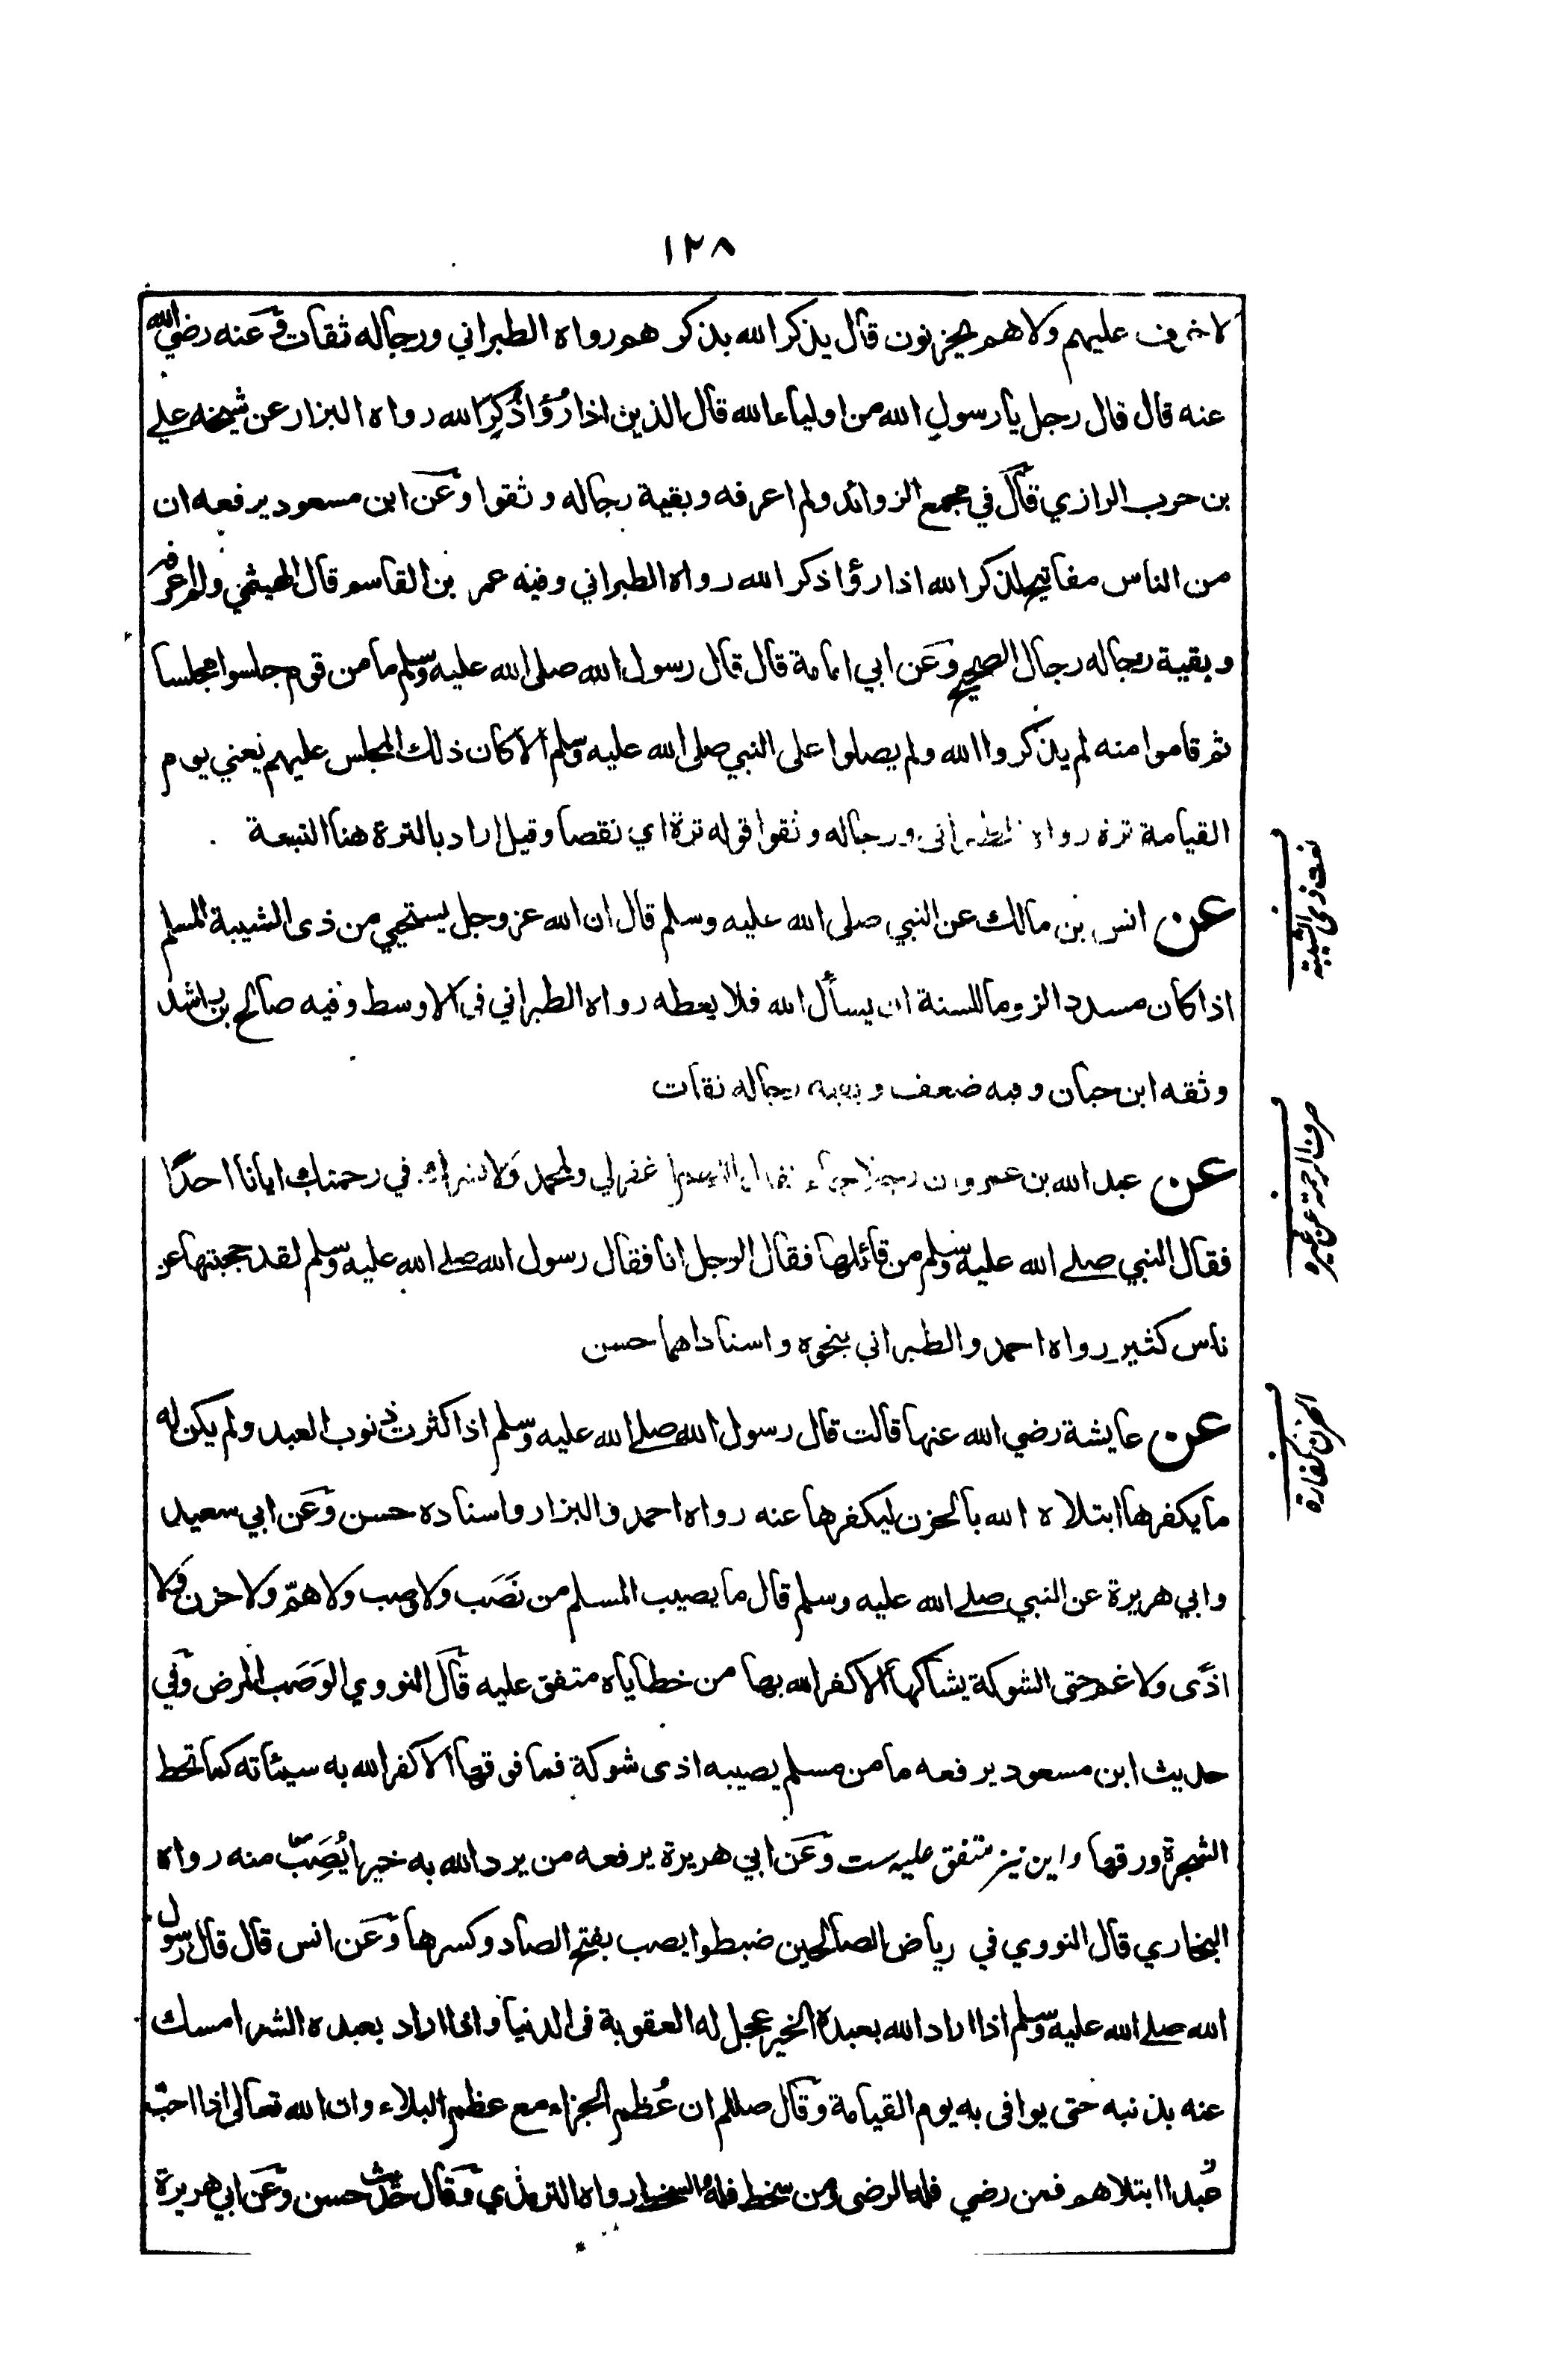 ١٢٨
لا خوف عليهم ولا هم يحزنون قال يذكر الله بذكر هم رواه الطبراني ورجاله ثقات وعنه رضي الله
عنه قال قال رجل يا رسول الله من اولياء الله قال الذين اذا رُؤا ذُكِرَ الله رواه البزار عن شيخه علي
بن حرب الرازي قال في مجمع الزوائد ولم اعرفه وبقية رجاله وثقوا وعن ابن مسعود يرفعه ان
من الناس مفاتيح لذكر الله اذا رؤا ذكر الله رواه الطبراني وفيه عمر بن القاسم قال الهيثمي ولم اعرفه
وبقية رجاله رجال الصحيح وعن ابي امامة قال قال رسول الله صلى الله عليه وسلم ما من قوم جلسوا مجلسا
ثم قاموا منه لم يذكروا الله ولم يصلوا على النبي صلى الله عليه وسلم الا كان ذلك المجلس عليهم يعني يوم
القيامة ترة رواه الطبراني ورجاله وثقوا قوله ترة اي نقصا وقيل اراد بالترة هنا التبعة
عن انس بن مالك عن النبي صلى الله عليه وسلم قال ان الله عز وجل يستحيي من ذى الشيبة المسلم
اذا كان مسددا لزوما للسنة ان يسأل الله فلا يعطه رواه الطبراني في الاوسط وفيه صالح بن راشد
وثقه ابن حبان وفيه ضعف وبقية رجاله ثقات
عن عبد الله بن عمرو ان رجلا جاء فقال اللهم اغفر لي ولمحمد ولا تشرك في رحمتك ايانا احدًا
فقال النبي صلے الله عليه وسلم من قائلها فقال الرجل انا فقال رسول الله صلے الله عليه وسلم لقد حجبتها عن
ناس كثير رواه احمد والطبراني بنحوه واسنادهما حسن
عن عايشة رضي الله عنها قالت قال رسول الله صلے الله عليه وسلم اذا كثرت ذنوب العبد ولم يكن له
ما يكفرها ابتلاه الله بالحزن ليكفرها عنه رواه احمد والبزار واسناده حسن وعن ابي سعيد
وابي هريرة عن النبي صلے الله عليه وسلم قال ما يصيب المسلم من نَصَب ولا وصب ولا همّ ولا حزن ولا
اذًى ولا غم حتى الشوكة يشاكها الا كفر الله بها من خطاياه متفق عليه قال النووي الوَصَب المرض وفي
حديث ابن مسعود يرفعه ما من مسلم يصيبه اذى شوكة فما فوقها الا كفر الله به سيئاته كما تحط
الشجرة ورقها واين نيز متفق عليه ست وعن ابي هريرة يرفعه من يرد الله به خيرا يُصِبْ منه رواه
البخاري قال النووي في رياض الصالحين ضبطوا يصب بفتح الصاد وكسرها وعن انس قال قال رسول
الله صلے الله عليه وسلم اذا اراد الله بعبده الخير عجل له العقوبة فى الدنيا واذا اراد بعبده الشر امسك
عنه بذنبه حتى يوافى به يوم القيامة وقال صللم ان عُظم الجزاء مع عظم البلاء وان الله تعالى اذا احب
عبدا ابتلاهم فمن رضي فله الرضى ومن سخط فله السخط رواه الترمذي وقال حديث حسن وعن ابي هريرة
صرف الرحمة عن غيره
الحزن كفارة